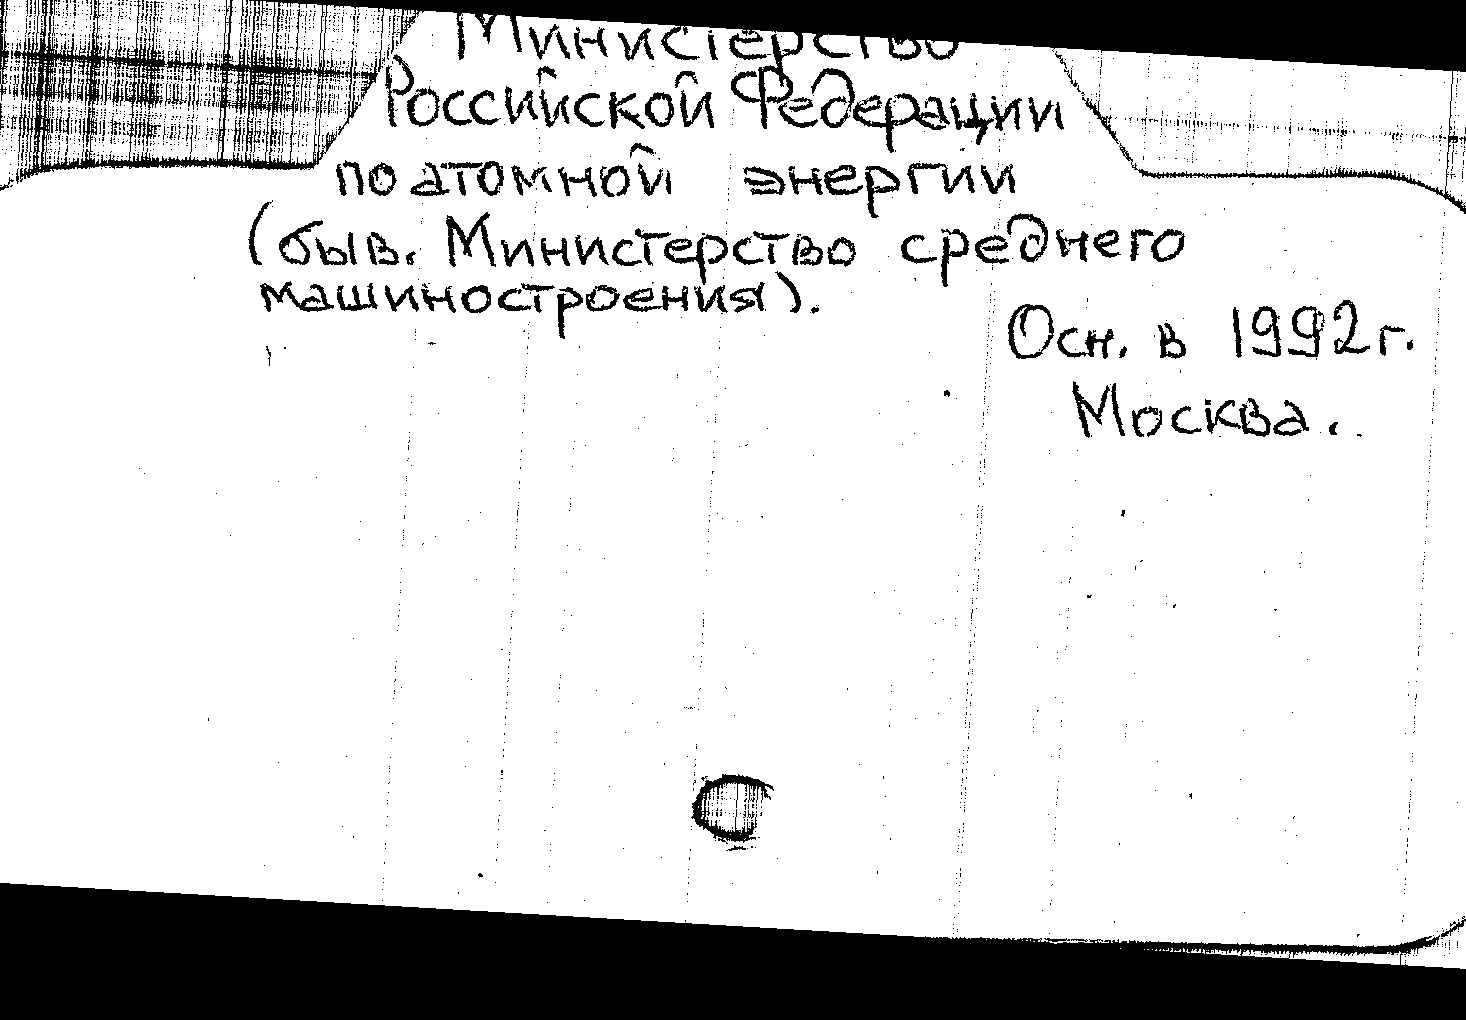 Министерство
Российской Федерации
по атомной энергии
(быв. Министерство среднего
машиностроения).
Осн. в 1992 г.
Москва.